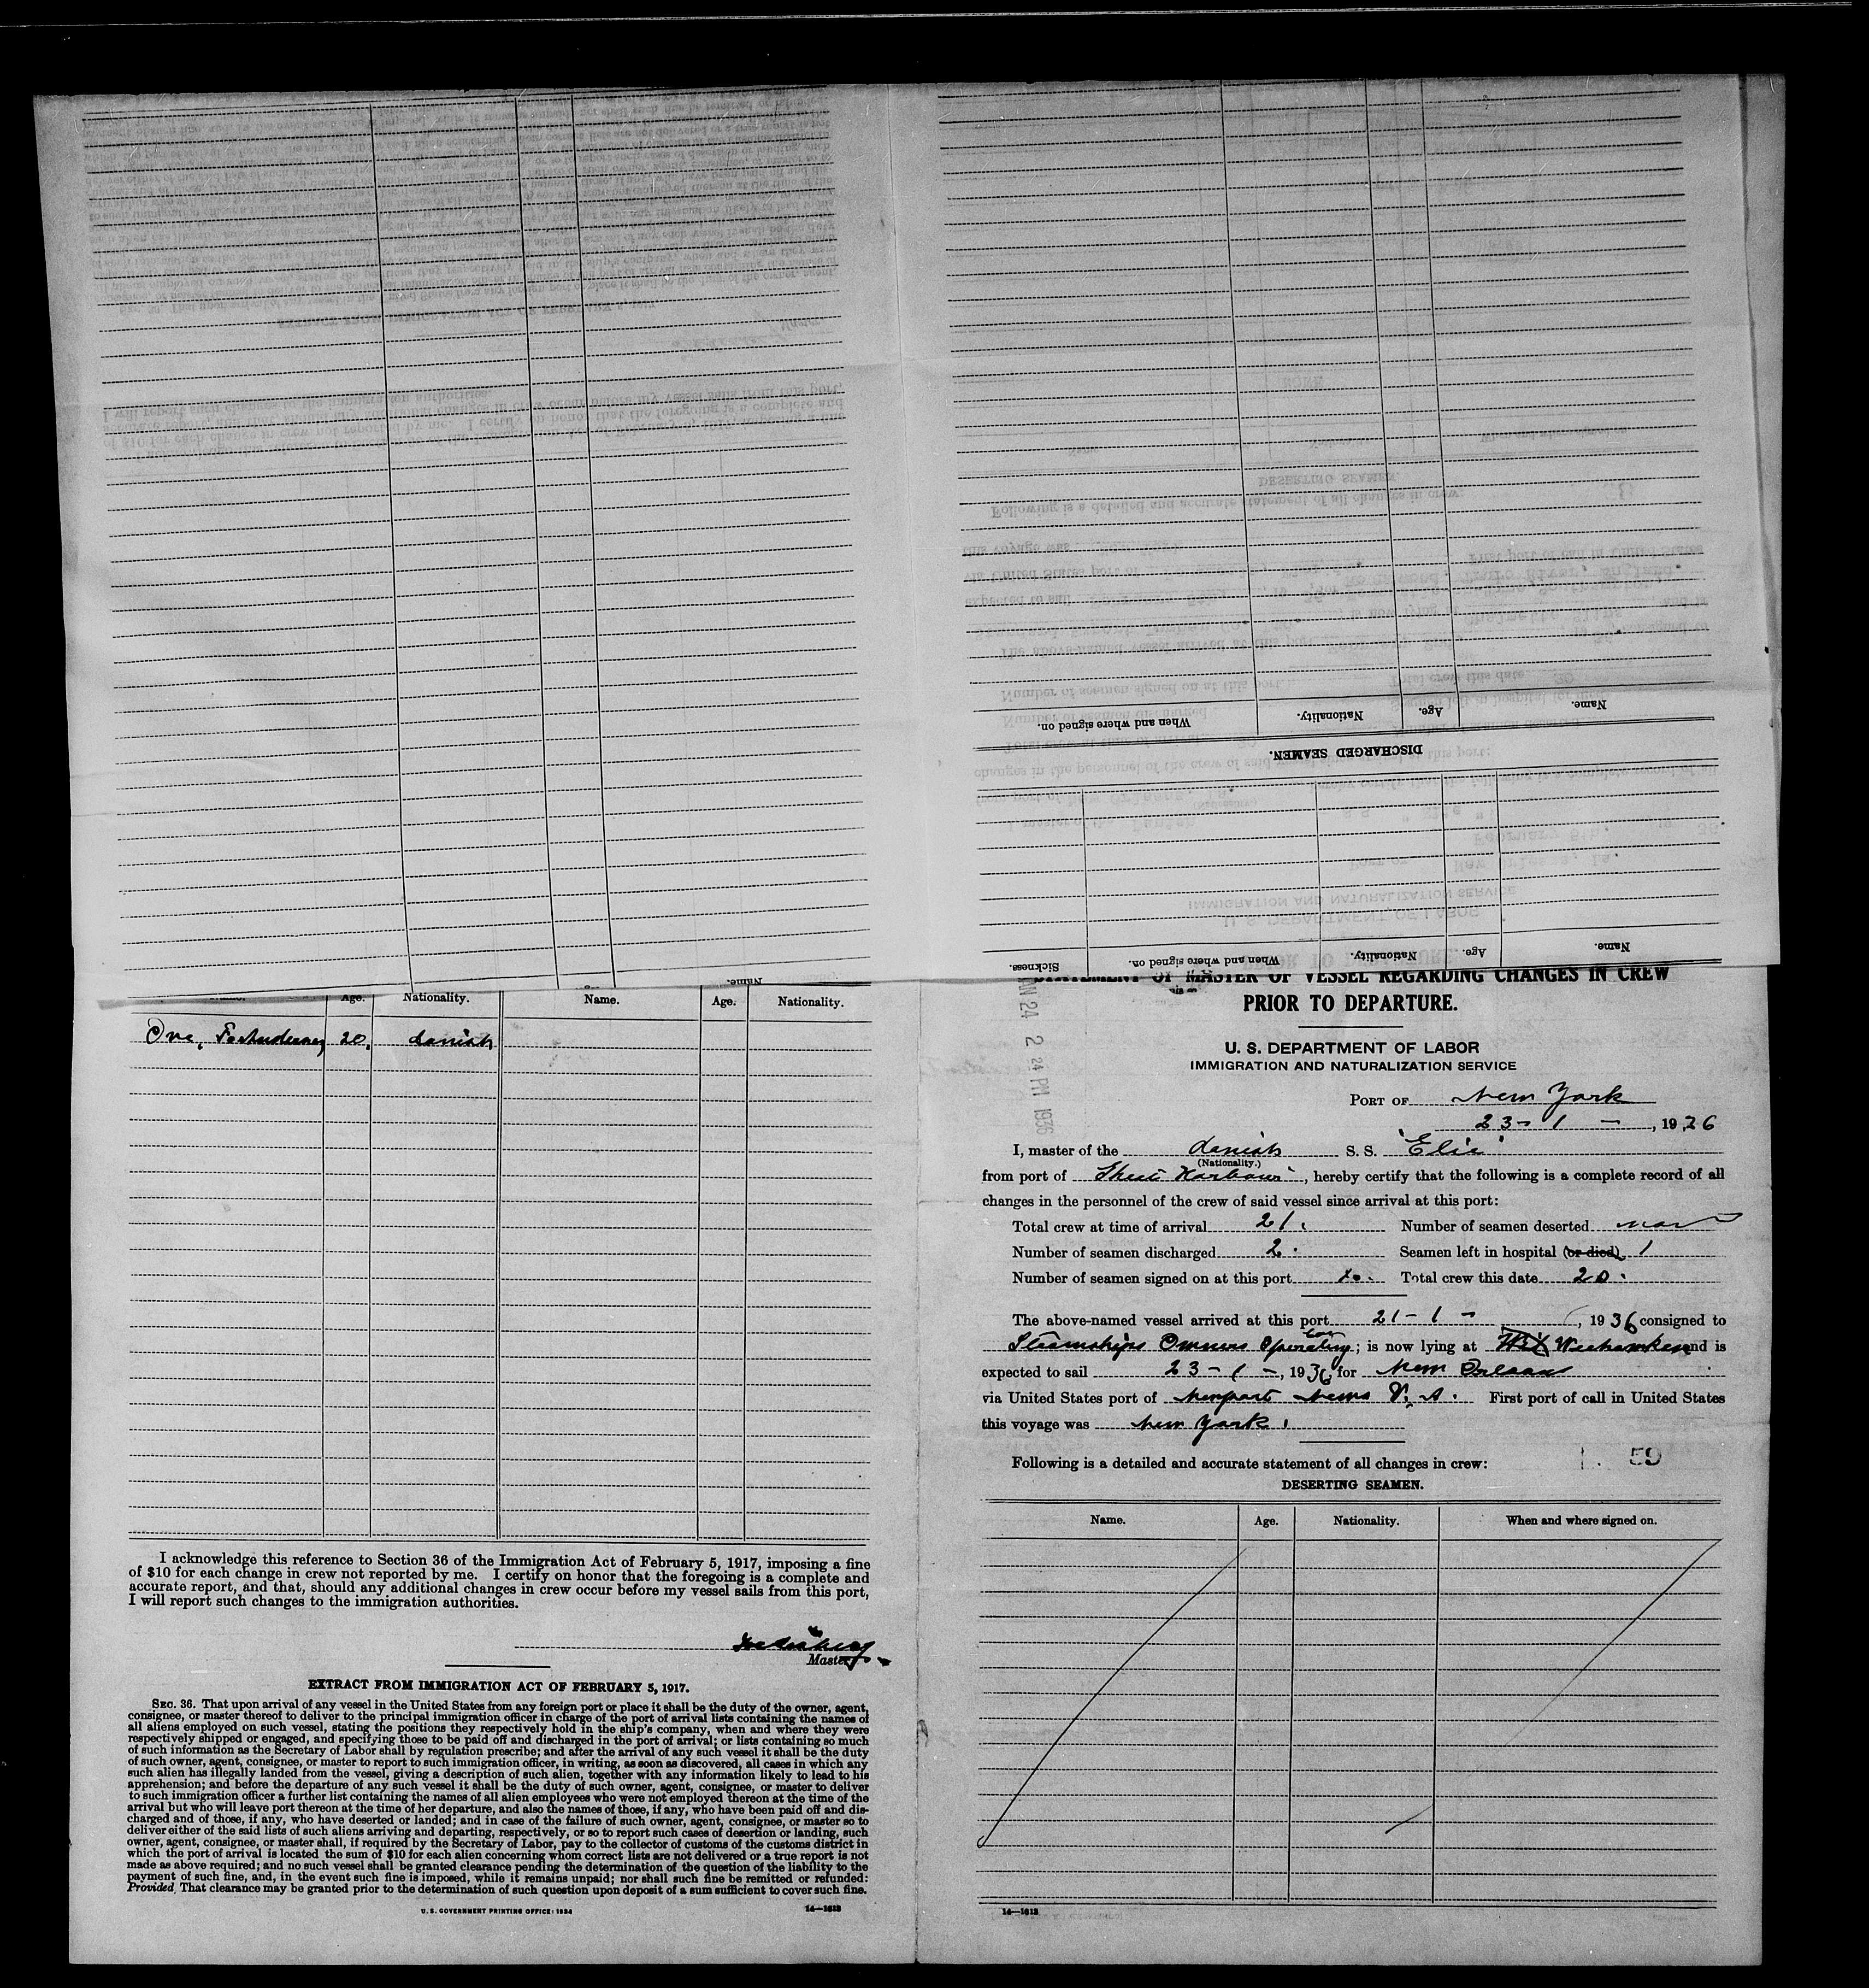 When and where signed on. Nationality. Age. Name.
DISCHARGED SEAMEN.
Sickness. When and where signed on. Nationality. Age. Name.
Age. Nationality. Name. Age. Nationality.
20. danish
I acknowledge this reference to Section 36 of the Immigration Act of February 5, 1917, imposing a fine
of $10 for each change in crew not reported by me. I certify on honor that the foregoing is a complete and
accurate report, and that, should any additional changes in crew occur before my vessel sails from this port,
I will report such changes to the immigration authorities.
Master.
EXTRACT FROM IMMIGRATION ACT OF FEBRUARY 5, 1917.
SEC. 36. That upon arrival of any vessel in the United States from any foreign port or place it shall be the duty of the owner, agent,
consignee, or master thereof to deliver to the principal immigration officer in charge of the port of arrival lists containing the names of
all aliens employed on such vessel, stating the positions they respectively hold in the ship's company, when and where they were
respectively shipped or engaged, and specifying those to be paid off and discharged in the port of arrival; or lists containing so much
of such information as the Secretary of Labor shall by regulation prescribe; and after the arrival of any such vessel it shall be the duty
of such owner, agent, consignee, or master to report to such immigration officer, in writing, as soon as discovered, all cases in which any
such alien has illegally landed from the vessel, giving a description of such alien, together with any information likely to lead to his
apprehension; and before the departure of any such vessel it shall be the duty of such owner, agent, consignee, or master to deliver
to such immigration officer a further list containing the names of all alien employees who were not employed thereon at the time of the
arrival but who will leave port thereon at the time of her departure, and also the names of those, if any, who have been paid off and dis-
charged and of those, if any, who have deserted or landed; and in case of the failure of such owner, agent, consignee, or master so to
deliver either of the said lists of such aliens arriving and departing, respectively, or so to report such cases of desertion or landing, such
owner, agent, consignee, or master shall, if required by the Secretary of Labor, pay to the collector of customs of the customs district in
which the port of arrival is located the sum of $10 for each alien concerning whom correct lists are not delivered or a true report is not
made as above required; and no such vessel shall be granted clearance pending the determination of the question of the liability to the
payment of such fine, and, in the event such fine is imposed, while it remains unpaid; nor shall such fine be remitted or refunded:
Provided, That clearance may be granted prior to the determination of such question upon deposit of a sum sufficient to cover such fine.
U. S. GOVERNMENT PRINTING OFFICE: 1934 14—1613
OF MASTER OF VESSEL REGARDING CHANGES IN CREW
PRIOR TO DEPARTURE.
24 2 24 PM 1936
U. S. DEPARTMENT OF LABOR
IMMIGRATION AND NATURALIZATION SERVICE
PORT OF New York
23 - 1 - , 1936
I, master of the danish S. S. "Elsie"
(Nationality.)
from port of Sheet Harbour, hereby certify that the following is a complete record of all
changes in the personnel of the crew of said vessel since arrival at this port:
Total crew at time of arrival 21. Number of seamen deserted
Number of seamen discharged 2. Seamen left in hospital (or died) 1
Number of seamen signed on at this port Total crew this date 20.
The above-named vessel arrived at this port 21 - 1 - , 1936 consigned to
Steamships Owners Operating Cor; is now lying at Weehawken and is
expected to sail 23 - 1 - , 1936 for New Orleans
via United States port of Newport News V. A. First port of call in United States
this voyage was New York.
Following is a detailed and accurate statement of all changes in crew: 59
DESERTING SEAMEN.
Name. Age. Nationality. When and where signed on.
14—1613